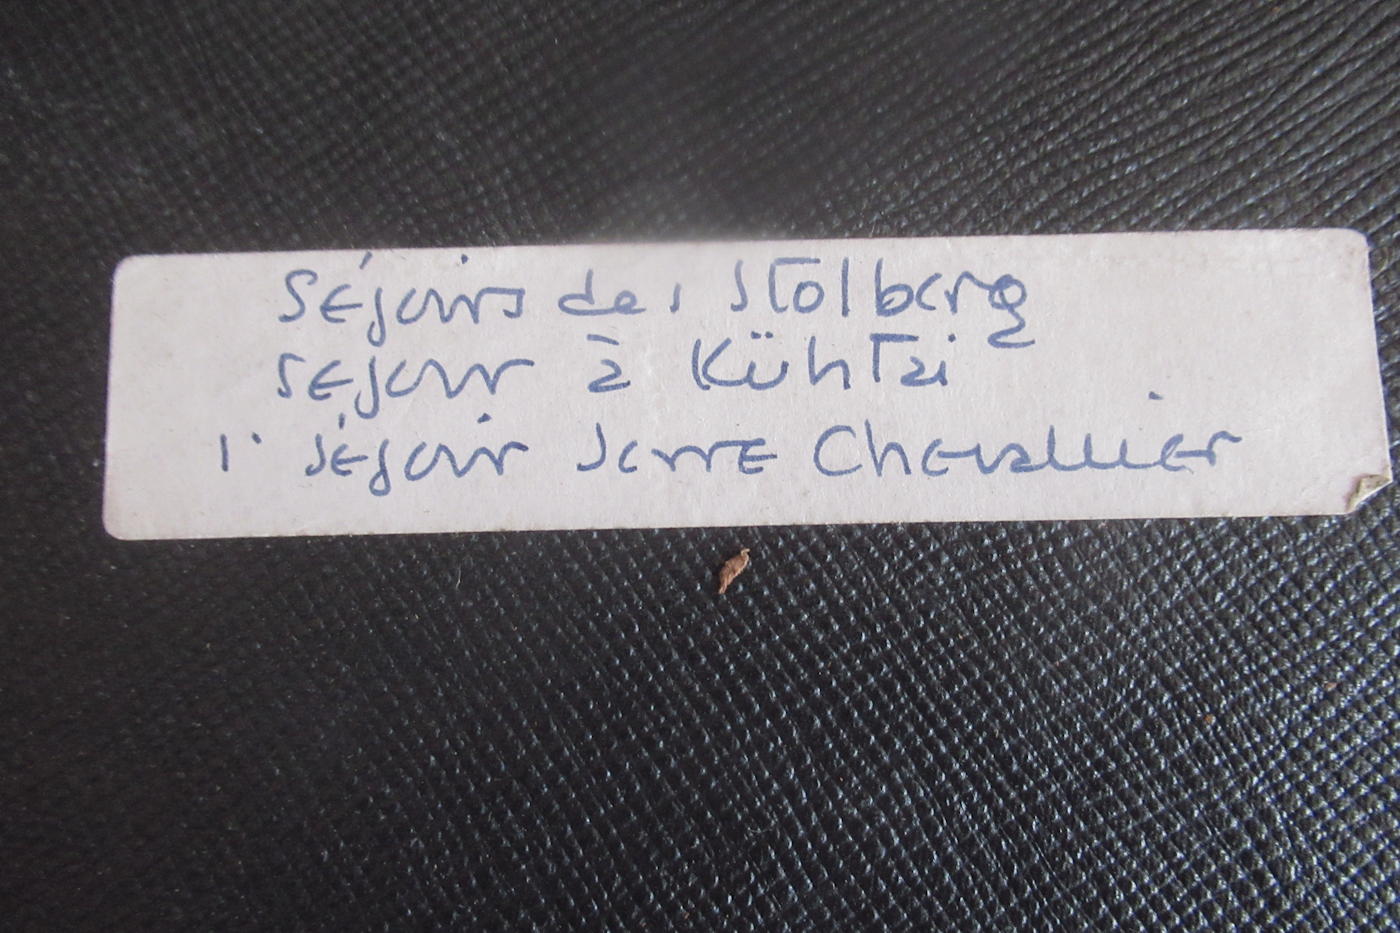 Séjours des Stolberg
séjour à Kühtai
1° séjour Serre Chevallier